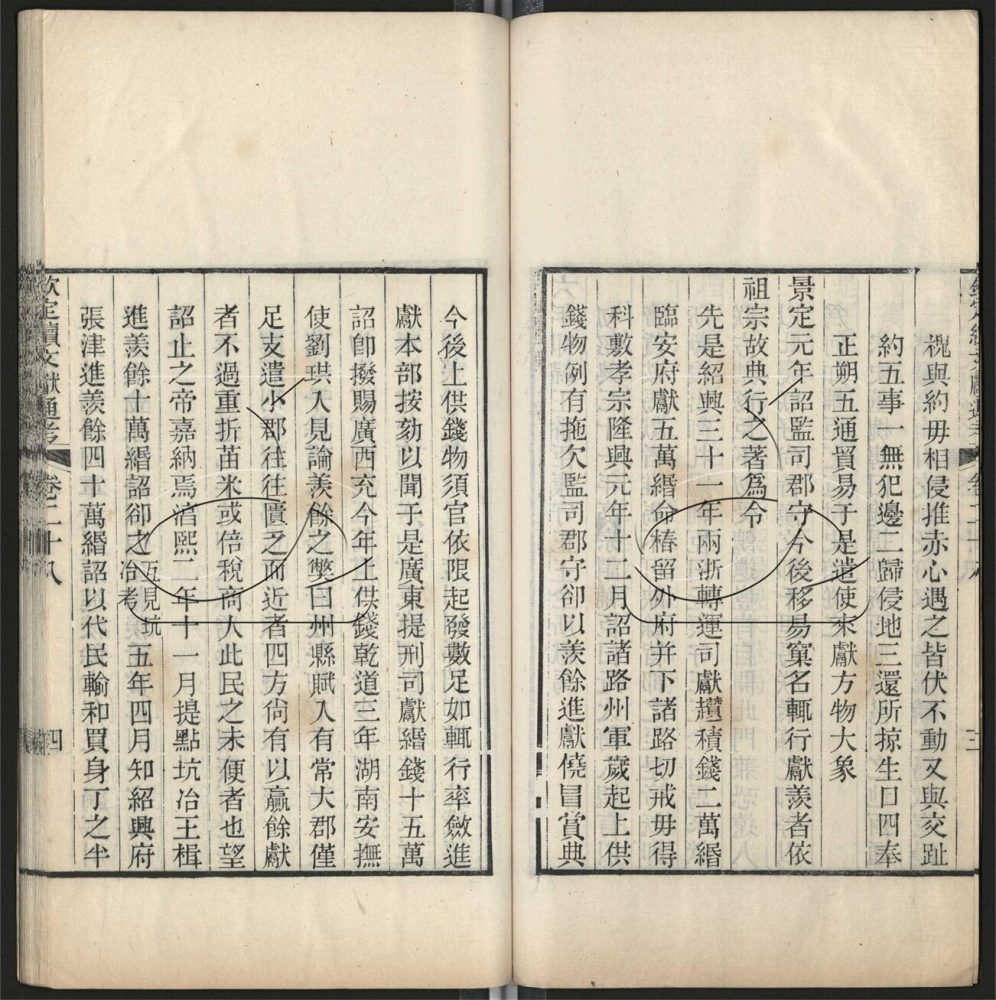 視與約毋相侵推赤心遇之皆伏不動又與交趾
約五事一無犯邊二歸侵地三還所掠生口四奉
正朔五通貿易于是遣使來獻方物大象
景定元年詔監司郡守今後移易窠名輒行獻羨者依
祖宗故典行之著爲令
先是紹興三十一年兩浙轉運司獻趲積錢二萬緡
臨安府獻五萬緡命樁留外府并下諸路切戒毋得
科敷孝宗隆興元年十二月詔諸路州軍歲起上供
錢物例有拖欠監司郡守卻以羨餘進獻僥冒賞典
今後上供錢物須官依限起發數足如輒行率斂進
獻本部按劾以聞于是廣東提刑司獻緡錢十五萬
詔卽撥賜廣西充今年上供錢乾道三年湖南安撫
使劉珙入見論羨餘之獘曰州縣賦入有常大郡僅
足支遣小郡往往匱乏而近者四方尚有以贏餘獻
者不過重折苗米或倍稅商人此民之未便者也望
詔止之帝嘉納焉淯熙二年十一月提點坑冶王楫
進羨餘十萬緡詔卻之互見坑冶考五年四月知紹興府
張津進羨餘四十萬緡詔以代民輸和買身丁之半
欽定續文獻通考 卷二十八 四